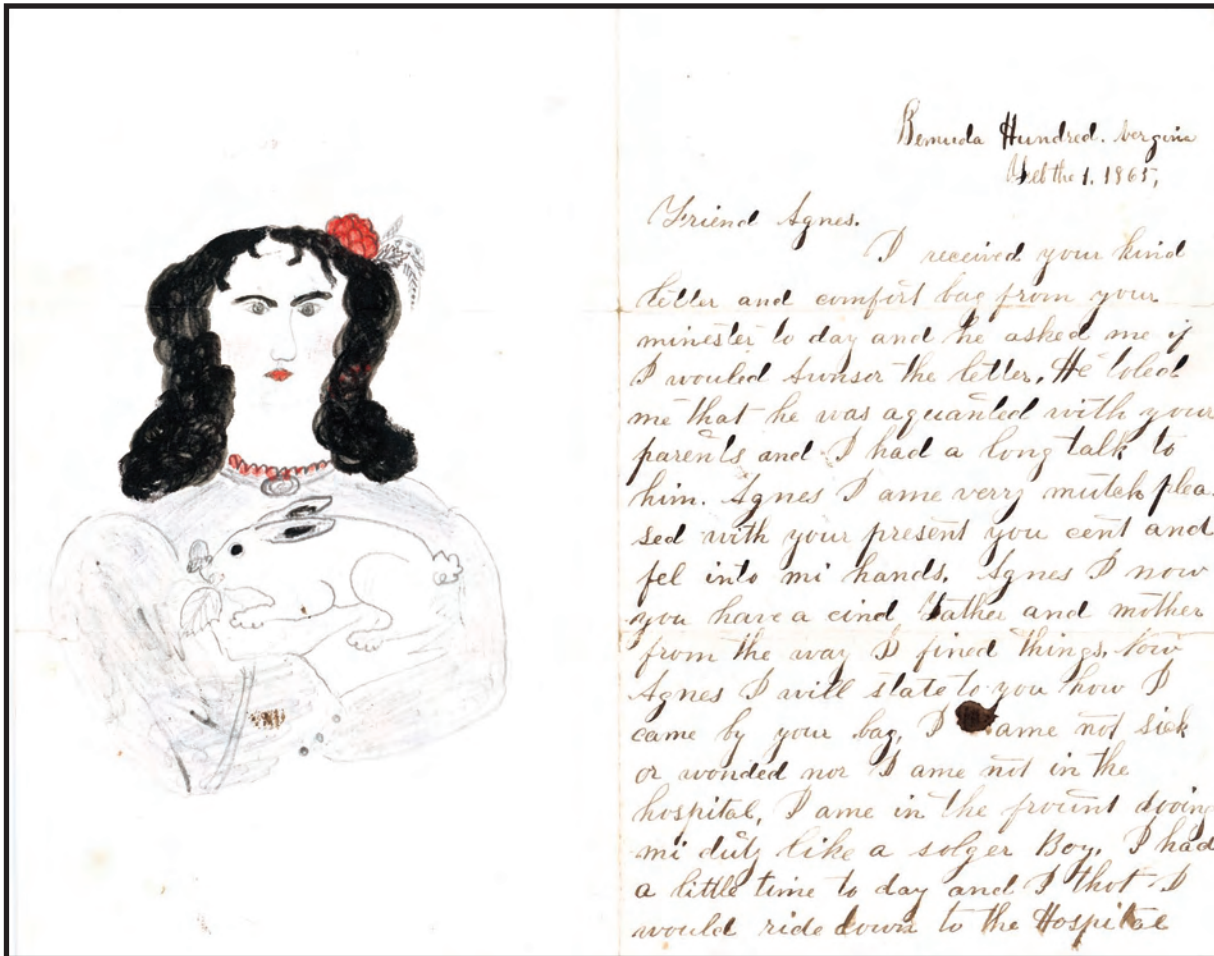 Bemuda Hundred. Vergina
Feb the 1. 1865,
Friend Agnes.
I received your kind
letter and comfort bag from your
minester to day and he asked me if
I wouled Awnser the letter, He toled
me that he was aquanted with your
parents and I had a long talk to
him. Agnes I ame verry mutch plea
sed with your present you cent and
fel into mi hands. Agnes I now
you have a cind Father and mother
from the way I fined things. Now
Agnes I will state to you how I
came by your bag, I ame not sick
or wonded nor I ame not in the
hospital, I ame in the frount dooing
mi duty like a solger Boy. I had
a little time to day and I thot I
would ride down to the Hospital